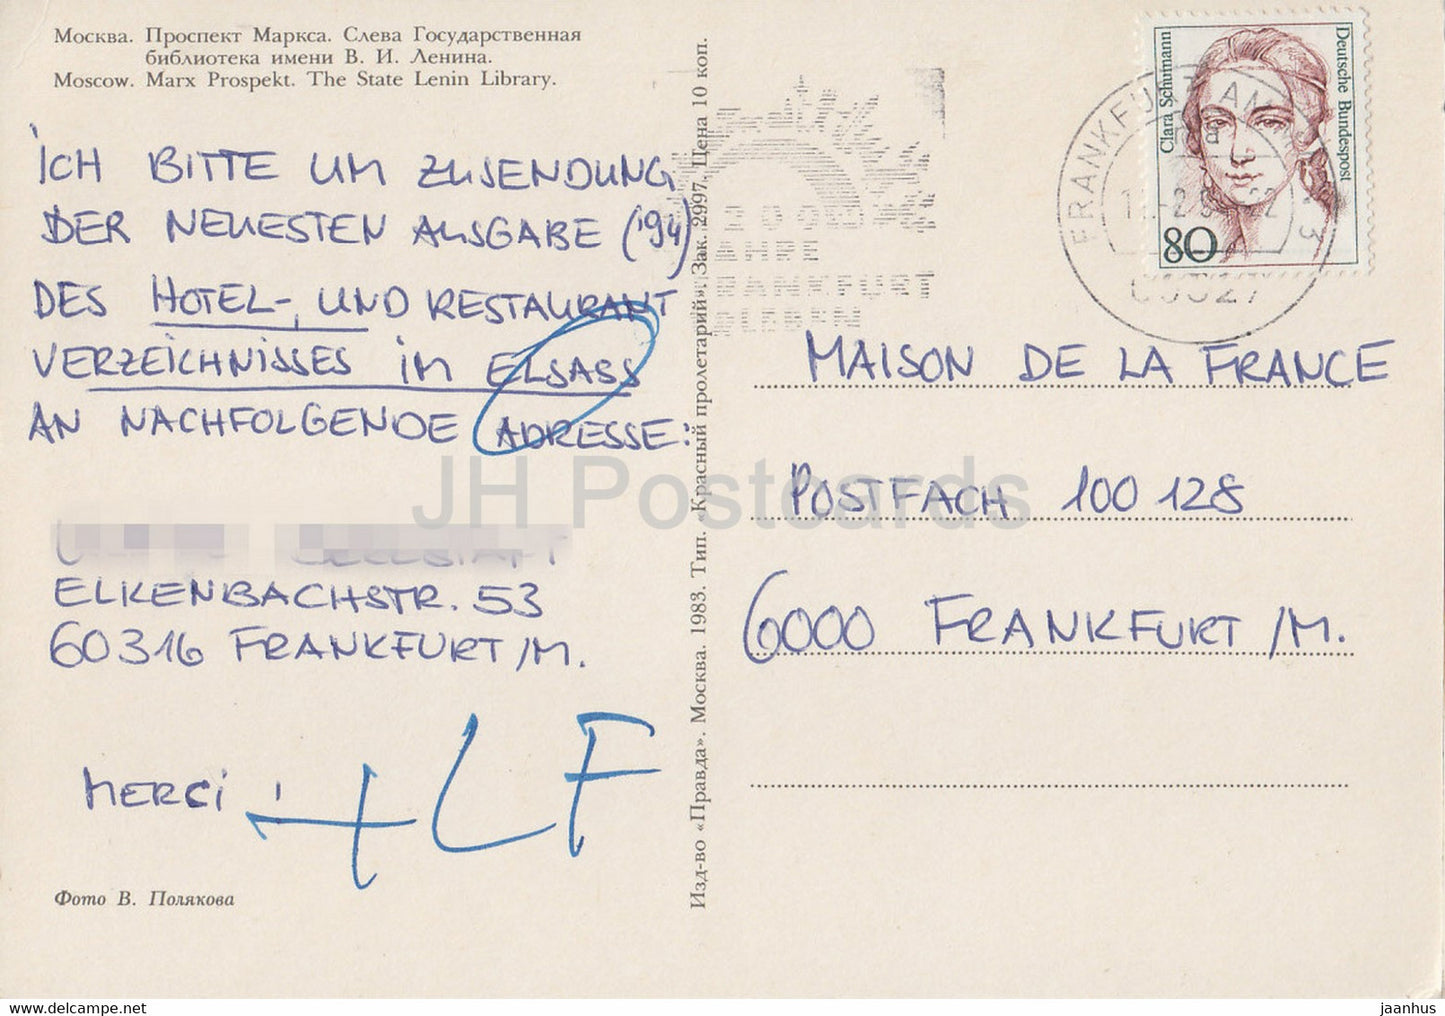 Москва. Проспект Маркса. Слева Государственная
библиотека имени В. И. Ленина.
Moscow. Marx Prospekt. The State Lenin Library.
ICH BITTE UM ZUSENDUNG
DER NEUESTEN AUSGABE ('94)
DES HOTEL-, UND RESTAURANT
VERZEICHNISSES IM ELSASS
AN NACHFOLGENDE ADRESSE:
ELKENBACHSTR. 53
60316 FRANKFURT /M.
MERCI !
+ LF
Фото В. Полякова
Изд-во «Правда». Москва. 1983. Тип. «Красный пролетарий». Зак. 2997. Цена 10 коп.
1200
JAHRE
FRANKFURT
FRANKFURT AM
3
Clara Schumann
Deutsche Bundespost
80
MAISON DE LA FRANCE
POSTFACH 100 128
6000 FRANKFURT /M.
JH Postcards
https://www.jh-postcards.com
jaanhus